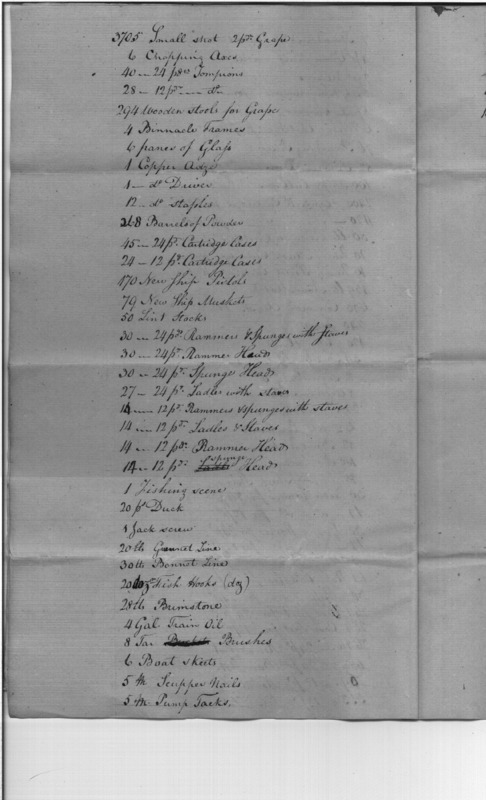 3705 Small shot 2pd Grape
6 Chopping Axes
40 — 24 pdrs Tompions
28 — 12 pdr — do
294 Wooden stools for Grape
4 Binnacle Frames
6 panes of Glass
1 Copper Adze
1 — do Driver
12 — do Staples
268 Barrels of Powder
45 — 24 pr Cartridge Cases
24 — 12 pr Cartridge Cases
170 New Ship Pistols
79 New Ship Muskets
50 Stocks
30 — 24 pr Rammers & Spunges with Staves
30 — 24 pr Rammer Heads
30 — 24 pr Spunges Heads
27 — 24 pr Ladles with staves
14 — 12 pr Rammers & spunges with staves
14 — 12 pr Ladles & Staves
14 — 12 pdr Rammer Heads
14 — 12 pr spunge Heads
1 Fishing scene
20 ps Duck
1 Jack screw
20 lb Line
30 lb Bonnet Line
20 doz Fish Hooks (doz)
28 lb Brimstone
4 Gal Train Oil
8 Tar Brushes
6 Boat skeets
5 M Scupper Nails
5 M Pump Tacks.